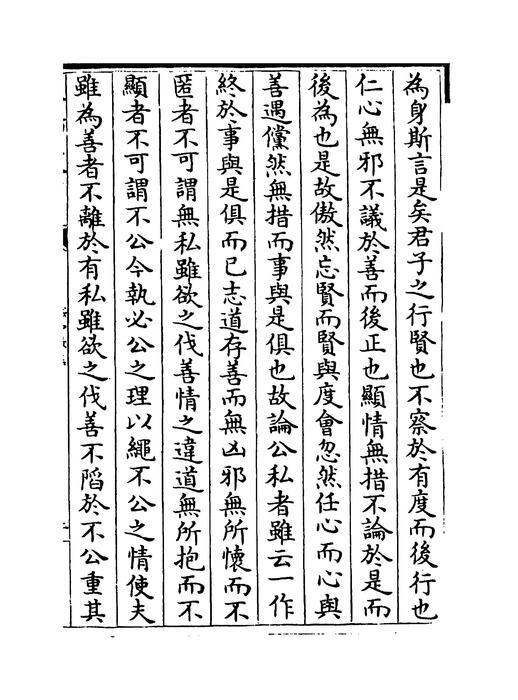 為身斯言是矣君子之行賢也不察於有度而後行也
仁心無邪不議於善而後正也顯情無措不論於是而
後為也是故傲然忘賢而賢與度會忽然任心而心與
善遇儻然無措而事與是俱也故論公私者雖云一作
終於事與是俱而已志道存善而無凶邪無所懷而不
匿者不可謂無私雖欲之伐善情之違道無所抱而不
顯者不可謂不公今執必公之理以繩不公之情使夫
雖為善者不離於有私雖欲之伐善不陷於不公重其